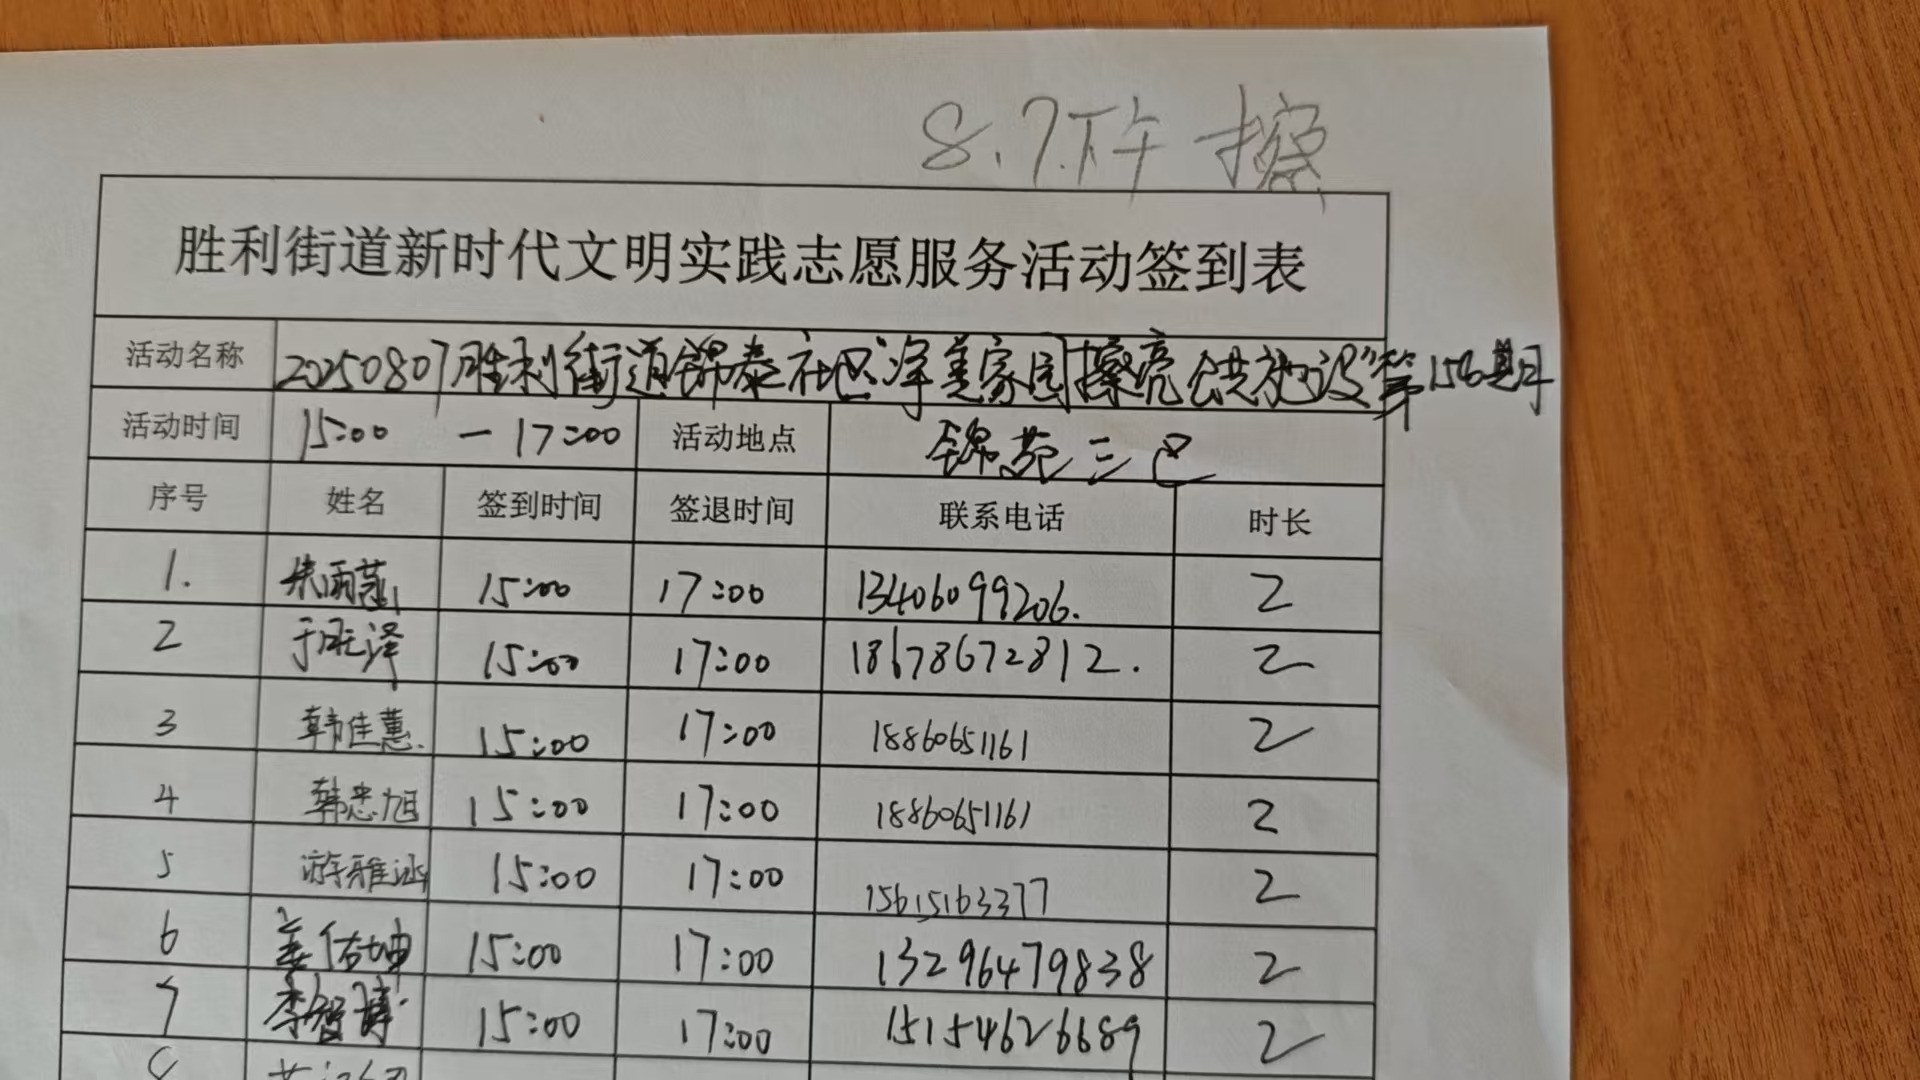 8.7.下午 擦
胜利街道新时代文明实践志愿服务活动签到表
活动名称 20250807胜利街道锦泰社区“净美家园擦亮公共设施”第158期
活动时间 15:00 — 17:00 活动地点 锦苑三区
序号 姓名 签到时间 签退时间 联系电话 时长
1. 朱雨菡 15:00 17:00 13406099206. 2
2 于泽 15:00 17:00 18678672812. 2
3 韩佳蕙. 15:00 17:00 18860651161 2
4 韩忠旭 15:00 17:00 18860651161 2
5 游雅涵 15:00 17:00 15615163377 2
6 姜佑坤 15:00 17:00 13296479838 2
7 李智博 15:00 17:00 15154626689 2
8